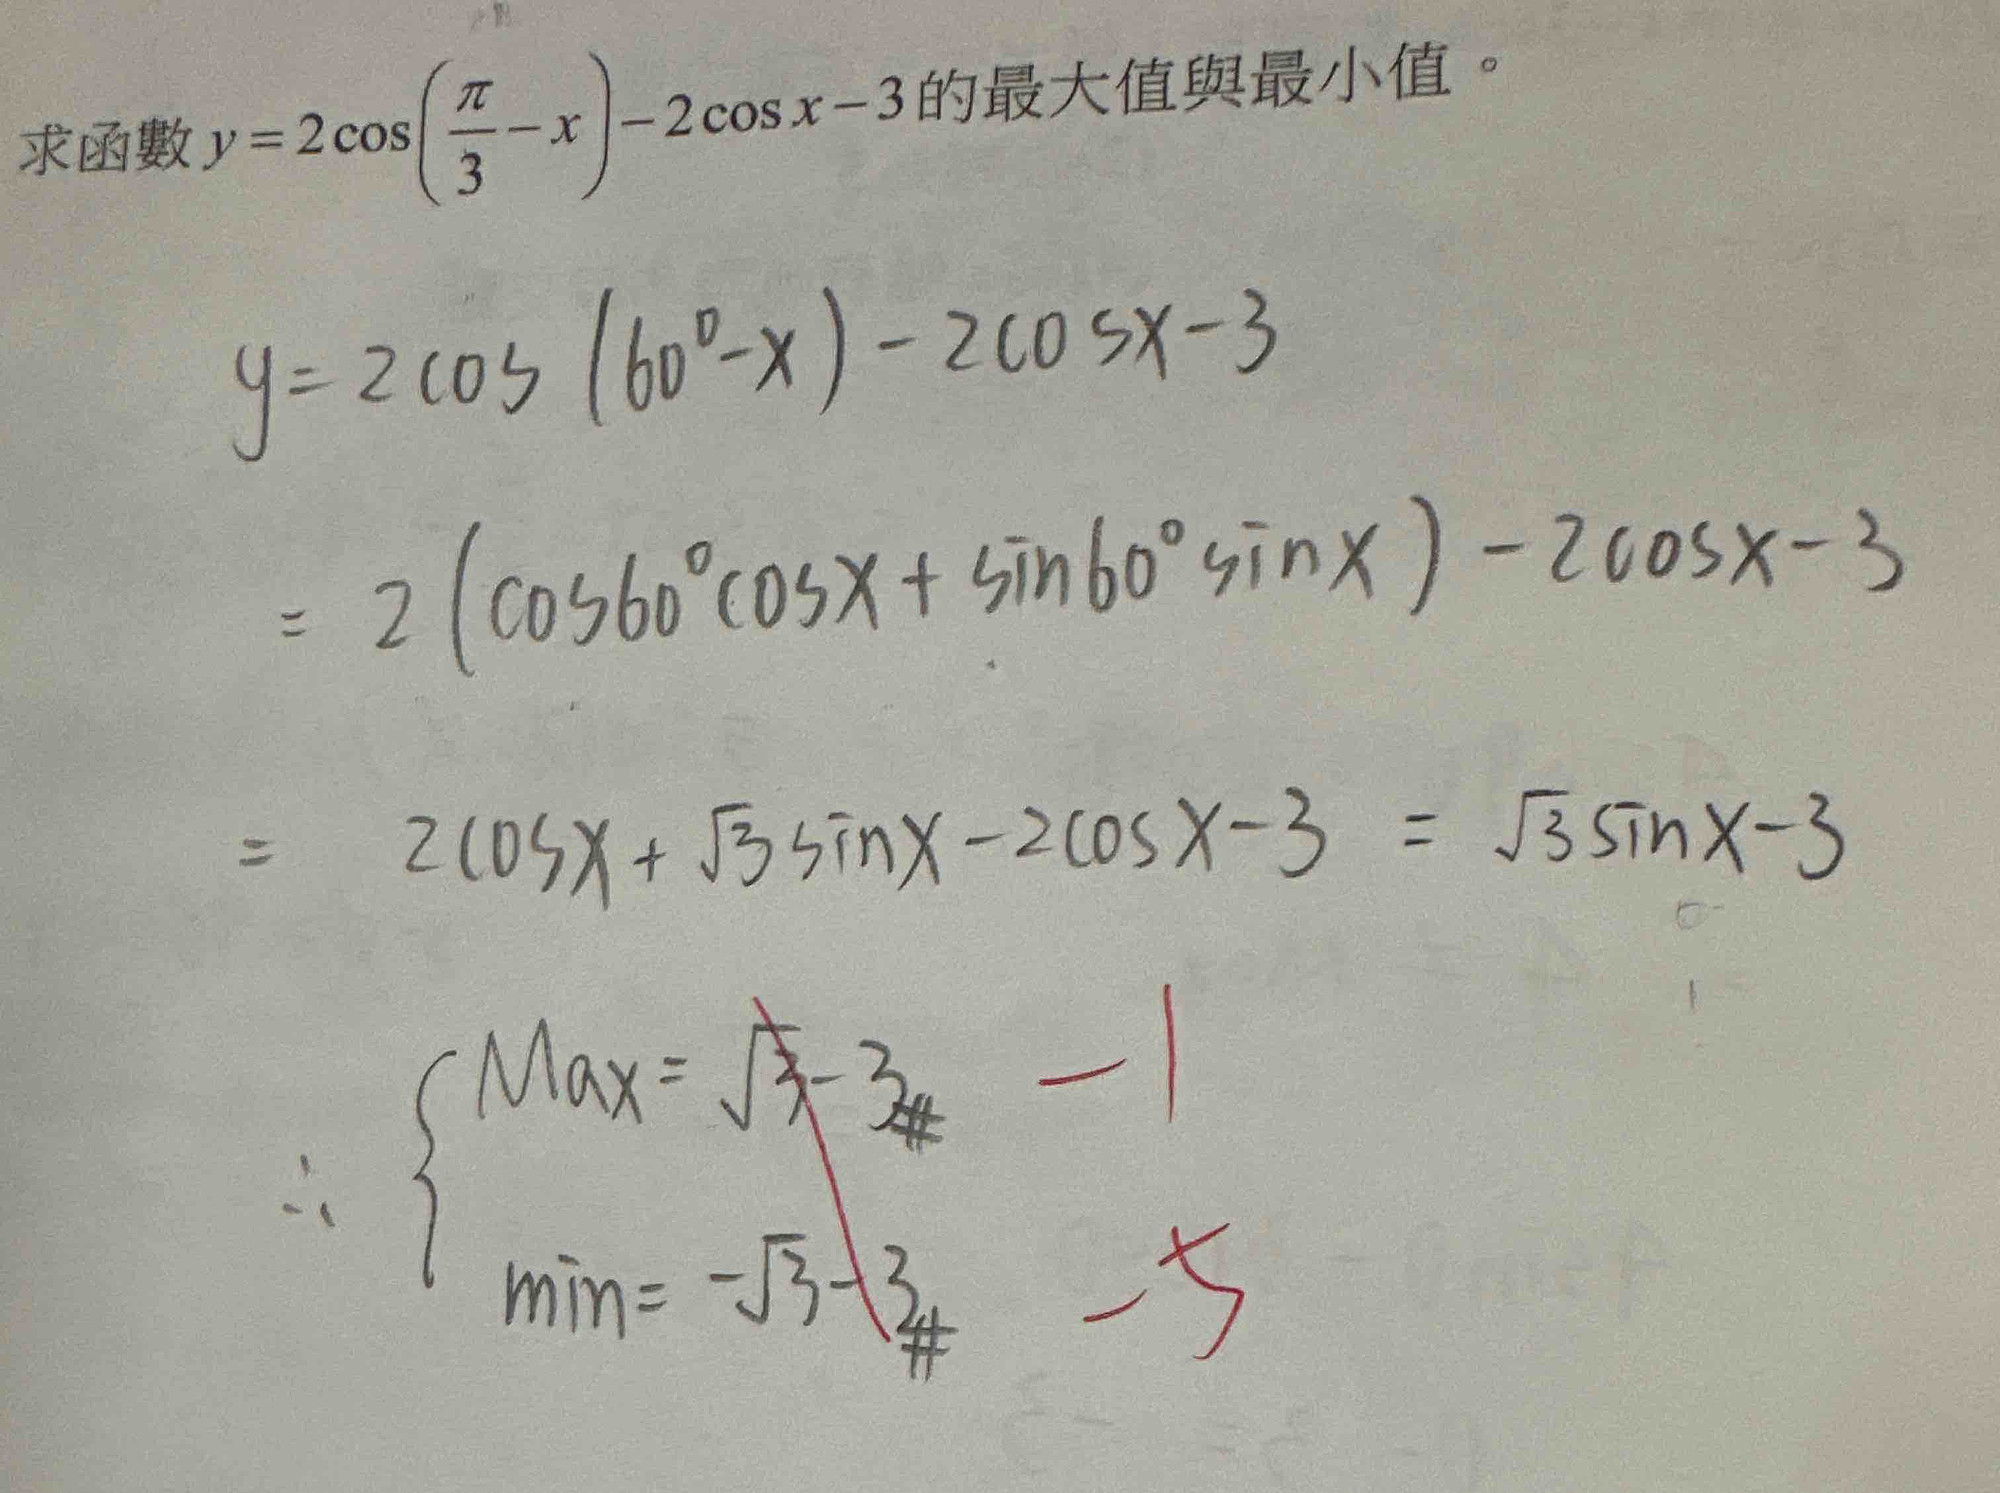 求函數 y = 2cos(π/3 − x) − 2cos x − 3 的最大值與最小值。
y = 2cos (60° − x) − 2cosx − 3
= 2 (cos60° cosx + sin60° sinx) − 2cosx − 3
= 2cosx + √3 sinx − 2cosx − 3 = √3 sinx − 3
∴ { Max = √3 − 3 # −1
min = −√3 − 3 # −5